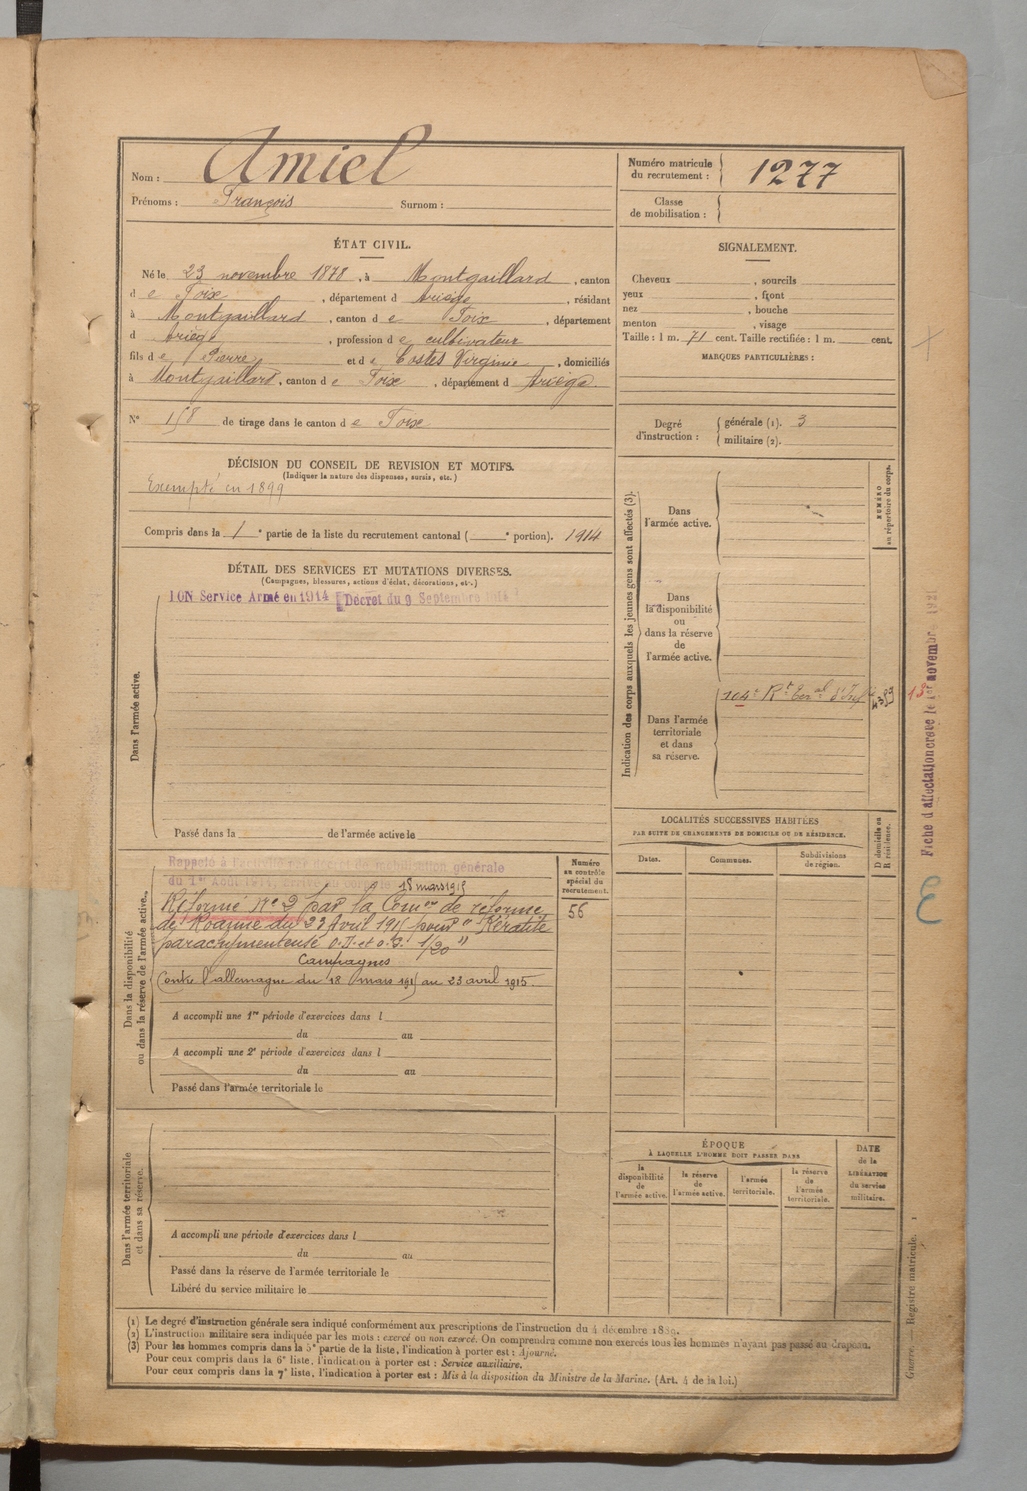 Nom : Amiel
Prénoms : François Surnom :
Numéro matricule
du recrutement : 1277
Classe
de mobilisation :
ÉTAT CIVIL.
Né le 23 novembre 1878, à Montgaillard, canton
d e Foix, département d Ariège, résidant
à Montgaillard, canton d e Foix, département
d Ariège, profession d e cultivateur
fils d e Pierre et d e Costes Virginie, domiciliés
à Montgaillard, canton d e Foix, département d Ariège.
N° 158 de tirage dans le canton d e Foix
DÉCISION DU CONSEIL DE REVISION ET MOTIFS.
(Indiquer la nature des dispenses, sursis, etc.)
Exempté en 1899
Compris dans la 1e partie de la liste du recrutement cantonal ( e portion). 1914
DÉTAIL DES SERVICES ET MUTATIONS DIVERSES.
(Campagnes, blessures, actions d'éclat, décorations, etc.)
Service Armé en 1914 Décret du 9 Septembre 1914
Dans l'armée active.
Passé dans la de l'armée active le
Dans la disponibilité
ou dans la réserve de l'armée active.
Rappelé à l'activité par décret de mobilisation générale
du 1er Août 1914, arrivé au corps le 18 mars 1915
Réformé N° 2 par la Comon de réforme
de Roanne du 23 Avril 1915 pour "Kératite
O.D. et O.G. 1/20"
Campagnes
Contre l'allemagne du 18 mars 1915 au 23 avril 1915.
A accompli une 1re période d'exercices dans l
du au
A accompli une 2e période d'exercices dans l
du au
Passé dans l'armée territoriale le
Numéro
au contrôle
spécial du
recrutement.
56
Dans l'armée territoriale
et dans sa réserve.
A accompli une période d'exercices dans l
du au
Passé dans la réserve de l'armée territoriale le
Libéré du service militaire le
SIGNALEMENT.
Cheveux , sourcils
yeux , front
nez , bouche
menton , visage
Taille : 1 m. 71 cent. Taille rectifiée : 1 m. cent.
MARQUES PARTICULIÈRES :
Degré
d'instruction :
générale (1). 3
militaire (2).
Indication des corps auxquels les jeunes gens sont affectés (3).
NUMÉRO
au répertoire du corps.
Dans
l'armée active.
Dans
la disponibilité
ou
dans la réserve
de
l'armée active.
Dans l'armée
territoriale
et dans
sa réserve.
104e Rt Teral d'Infie
Fiche d'affectation créée le 1er novembre 1921
LOCALITÉS SUCCESSIVES HABITÉES
PAR SUITE DE CHANGEMENTS DE DOMICILE OU DE RÉSIDENCE.
Dates.
Communes.
Subdivisions
de région.
D domicile ou
R résidence.
ÉPOQUE
À LAQUELLE L'HOMME DOIT PASSER DANS
la
disponibilité
de
l'armée active.
la réserve
de
l'armée active.
l'armée
territoriale.
la réserve
de
l'armée
territoriale.
DATE
de la
LIBÉRATION
du service
militaire.
(1) Le degré d'instruction générale sera indiqué conformément aux prescriptions de l'instruction du 4 décembre 1889.
(2) L'instruction militaire sera indiquée par les mots : exercé ou non exercé. On comprendra comme non exercés tous les hommes n'ayant pas passé au drapeau.
(3) Pour les hommes compris dans la 5e partie de la liste, l'indication à porter est : Ajourné.
Pour ceux compris dans la 6e liste, l'indication à porter est : Service auxiliaire.
Pour ceux compris dans la 7e liste, l'indication à porter est : Mis à la disposition du Ministre de la Marine. (Art. 4 de la loi.)
Guerre. — Registre matricule. 1